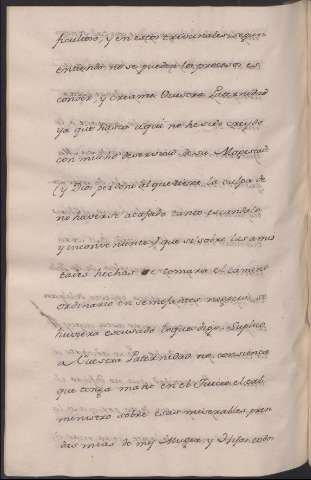 ficultoso, y en estos tribunales segun
entiendo no se pueden los procesos es
conder, y creame Vuestra Paternidad
ya que hasta aqui no he sido creydo
con mucho deservicio de su Magestad
(y Dios perdone al que tiene la culpa de
no haverse atajado tanto escandalo
e ynconveniente) que si sobre las amis
tades hechas se tomara el camino
ordinario en semejantes negocios, se
huviera escusado lo que digo. Suplico
a Vuestra Paternidad no consienta
que tenga mano en el Juicio el tal
ministro sobre esas miserables, pren
das mias de mi Muger y Hijos, todos